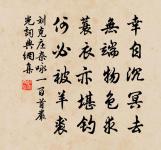 幸自沉冥去
無端物色求
蓑衣亦堪釣
何必被羊裘
劉克庄杂咏一百首嚴
光詞典網集